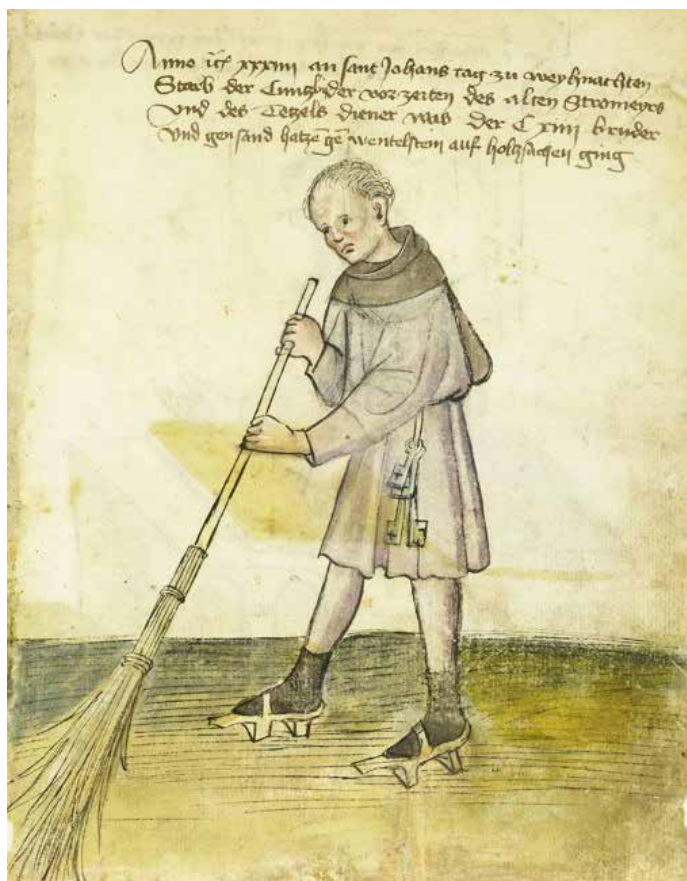 Anno iiijc xxxiiii an sant Johans tag zu weyhnachten
Starb der Cuntz der vor zeiten des alten Stromeyrs
Vnd des Tetzels diener was der C xiiii bruder
vnd gen wentelstein auf holtzschen ging